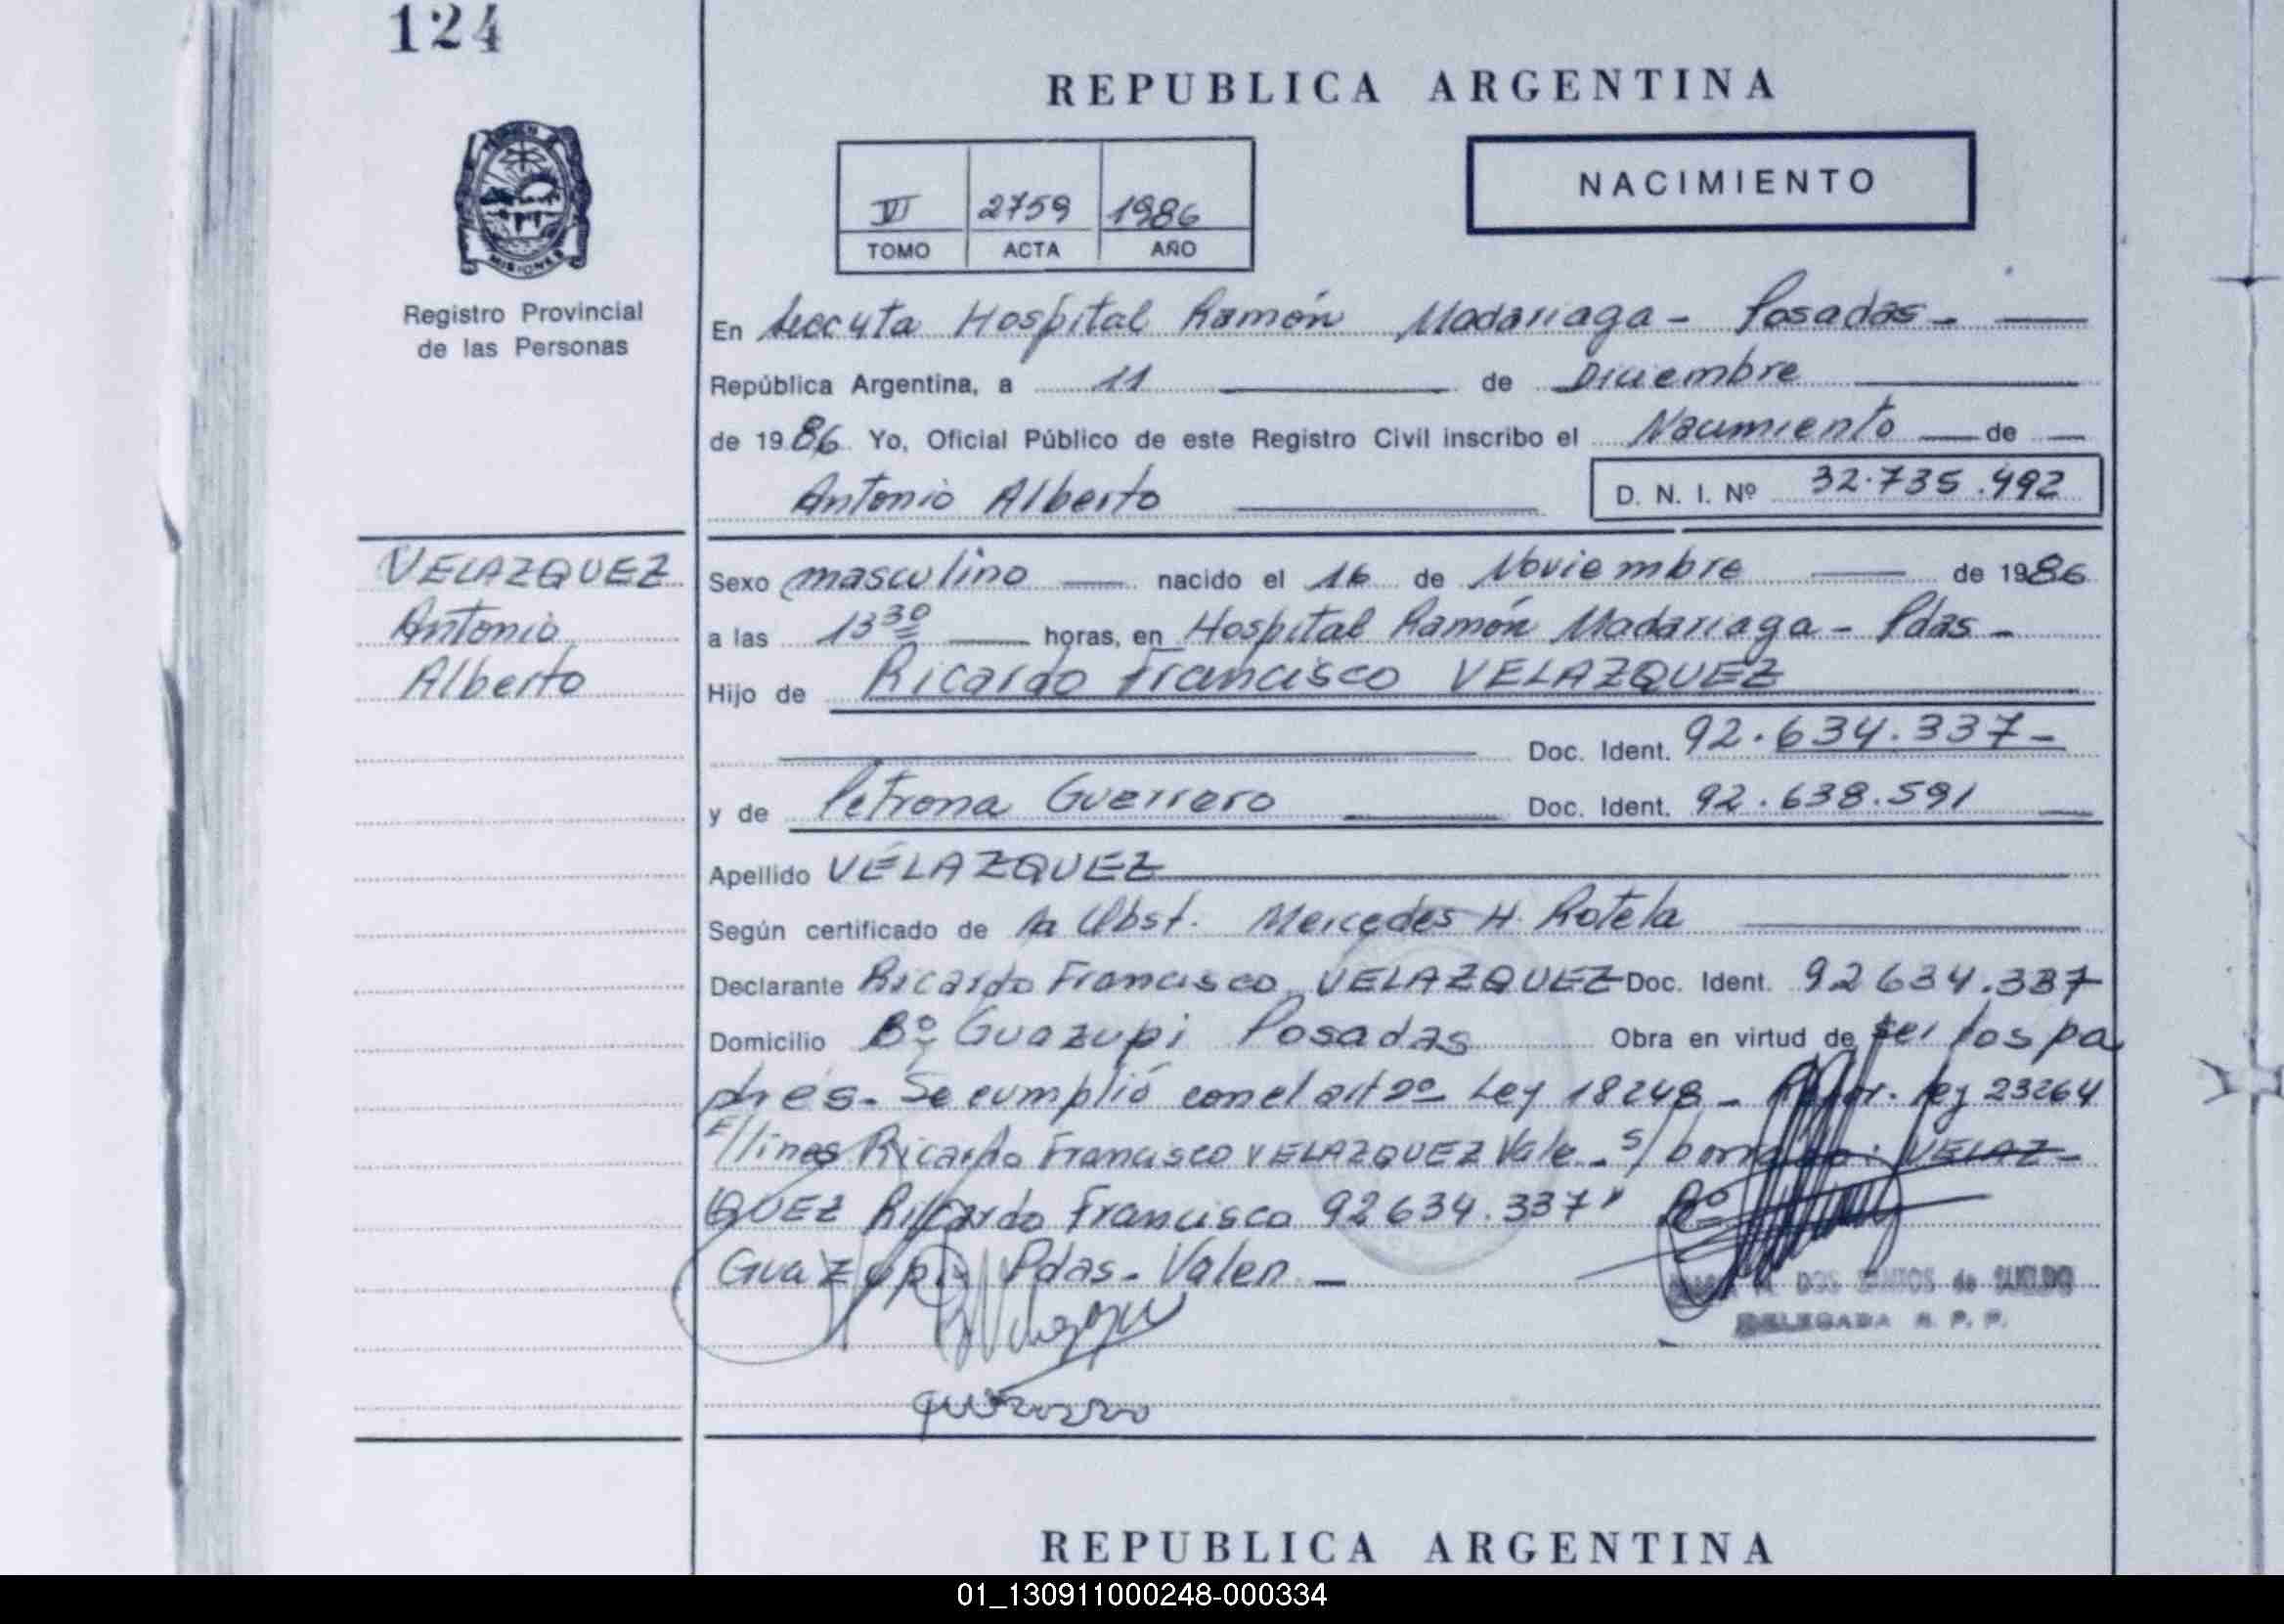 124
REPUBLICA ARGENTINA
MISIONES
Registro Provincial
de las Personas
VI 2759 1986
TOMO ACTA AÑO
NACIMIENTO
En Hospital Ramón Madariaga - Posadas -
República Argentina, a 11 de Diciembre
de 1986. Yo, Oficial Público de este Registro Civil inscribo el Nacimiento de
Antonio Alberto D. N. I. Nº 32.735.492
VELAZQUEZ
Antonio
Alberto
Sexo masculino nacido el 16 de Noviembre de 1986
a las 13 30 horas, en Hospital Ramón Madariaga - Pdas -
Hijo de Ricardo Francisco VELAZQUEZ
Doc. Ident. 92.634.337-
y de Petrona Guerrero Doc. Ident. 92.638.591
Apellido VELAZQUEZ
Según certificado de la Obst. Mercedes H. Rotela
Declarante Ricardo Francisco VELAZQUEZ Doc. Ident. 92634.337
Domicilio Bº Guazupi Posadas Obra en virtud de ser los pa
dres. Se cumplió con el art 2º Ley 18248 - ley 23264
E/lineas Ricardo Francisco VELAZQUEZ Vale - s/ VELAZ-
QUEZ Ricardo Francisco 92634.337" Bº
Guazupi Pdas - Valen -
DOS SANTOS de
DELEGADA R. P. P.
REPUBLICA ARGENTINA
01_130911000248-000334